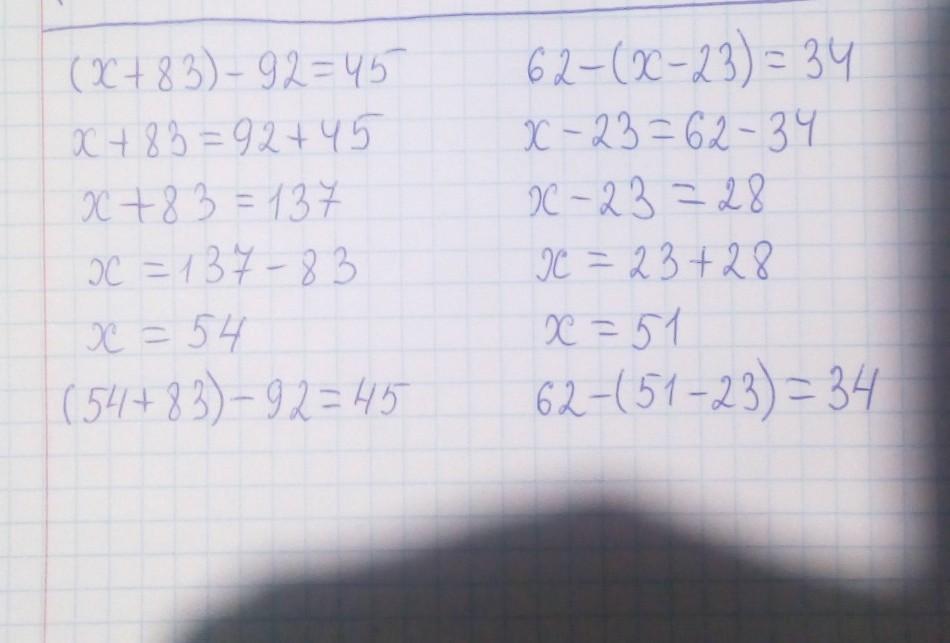 (x+83)-92=45
x+83=92+45
x+83=137
x=137-83
x=54
(54+83)-92=45
62-(x-23)=34
x-23=62-34
x-23=28
x=23+28
x=51
62-(51-23)=34